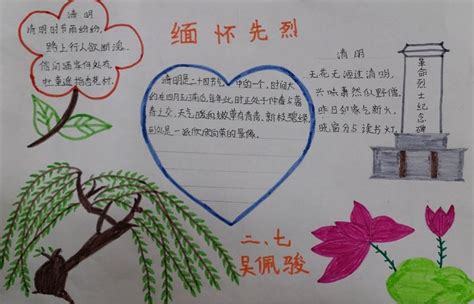 缅怀先烈
清明
清明时节雨纷纷,
路上行人欲断魂。
借问酒家何处有
牧童遥指杏花村.
清明是二十四节气中的一个,时间大
约在四月五前后,每年此时正处于仲春与暮
春之交,天气嫩草青青,新枝翠绿
到处是一派欣欣向荣的景像.
清明
无花无酒过清明,
兴味萧然似野僧.
昨日邻家乞新火,
晓窗分与读书灯.
革命烈士纪念碑
二、七
吴佩骏